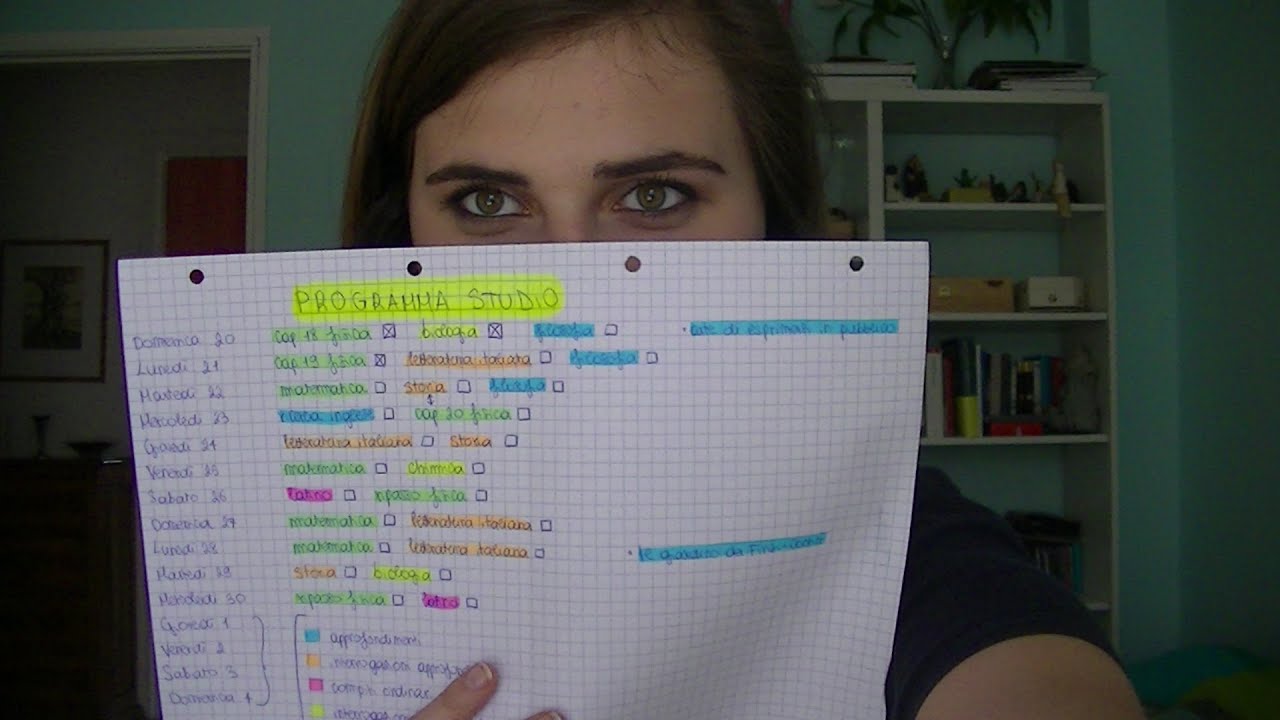 PROGRAMMA STUDIO
Domenica 20 cap 18 fisica biologia filosofia • l'arte di esprimersi in pubblico
Lunedì 21 cap 19 fisica letteratura italiana filosofia
Martedì 22 matematica storia filosofia
Mercoledì 23 inglese cap 20 fisica
Giovedì 24 letteratura italiana storia
Venerdì 25 matematica chimica
Sabato 26 latino ripasso fisica
Domenica 27 matematica letteratura italiana
Lunedì 28 matematica letteratura italiana • le giardino dei Finzi
Martedì 29 storia biologia
Mercoledì 30 ripasso fisica latino
Giovedì 1
Venerdì 2
Sabato 3
Domenica 4
approfondimenti
interrogazioni
compiti